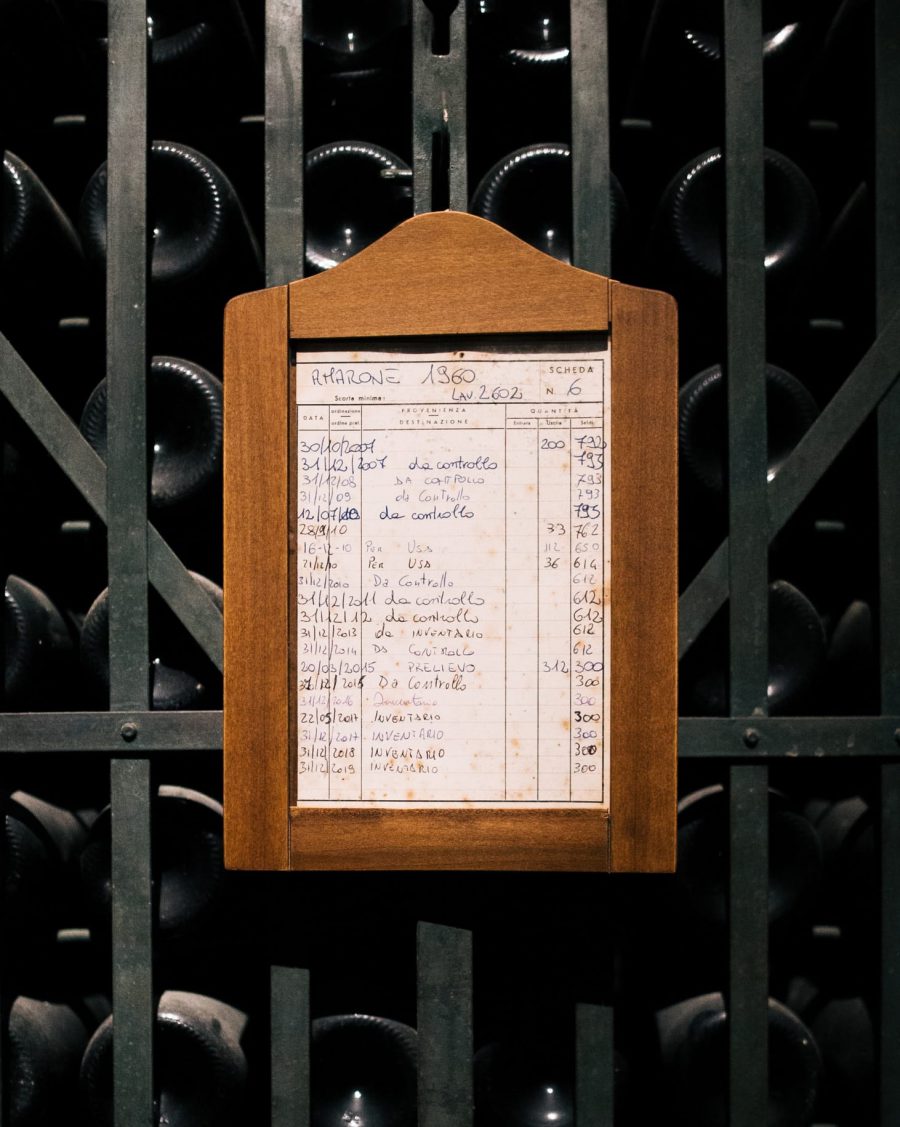 AMARONE 1960 SCHEDA
Scorte minime: LAV. 2602 N. 6
DATA ordinazione PROVENIENZA QUANTITÀ
ordine prel. DESTINAZIONE Entrata Uscita Saldo
30/10/2007 200 792
31/12/2007 da controllo 793
31/12/08 DA CONTROLLO 793
31/12/09 da Controllo 793
12/07/ da controllo 795
28/9/10 33 762
16-12-10 Per Uso 112 650
21/12/10 Per USO 36 614
31/12/2010 Da Controllo 612
31/12/2011 da controllo 612
31/12/12 da controllo 612
31/12/2013 da INVENTARIO 612
31/12/2014 DA CONTROLLO 612
20/03/2015 PRELIEVO 312 300
31/12/2015 Da Controllo 300
31/12/2016 Inventario 300
22/05/2017 INVENTARIO 300
31/12/2017 INVENTARIO 300
31/12/2018 INVENTARIO 300
31/12/2019 INVENTARIO 300